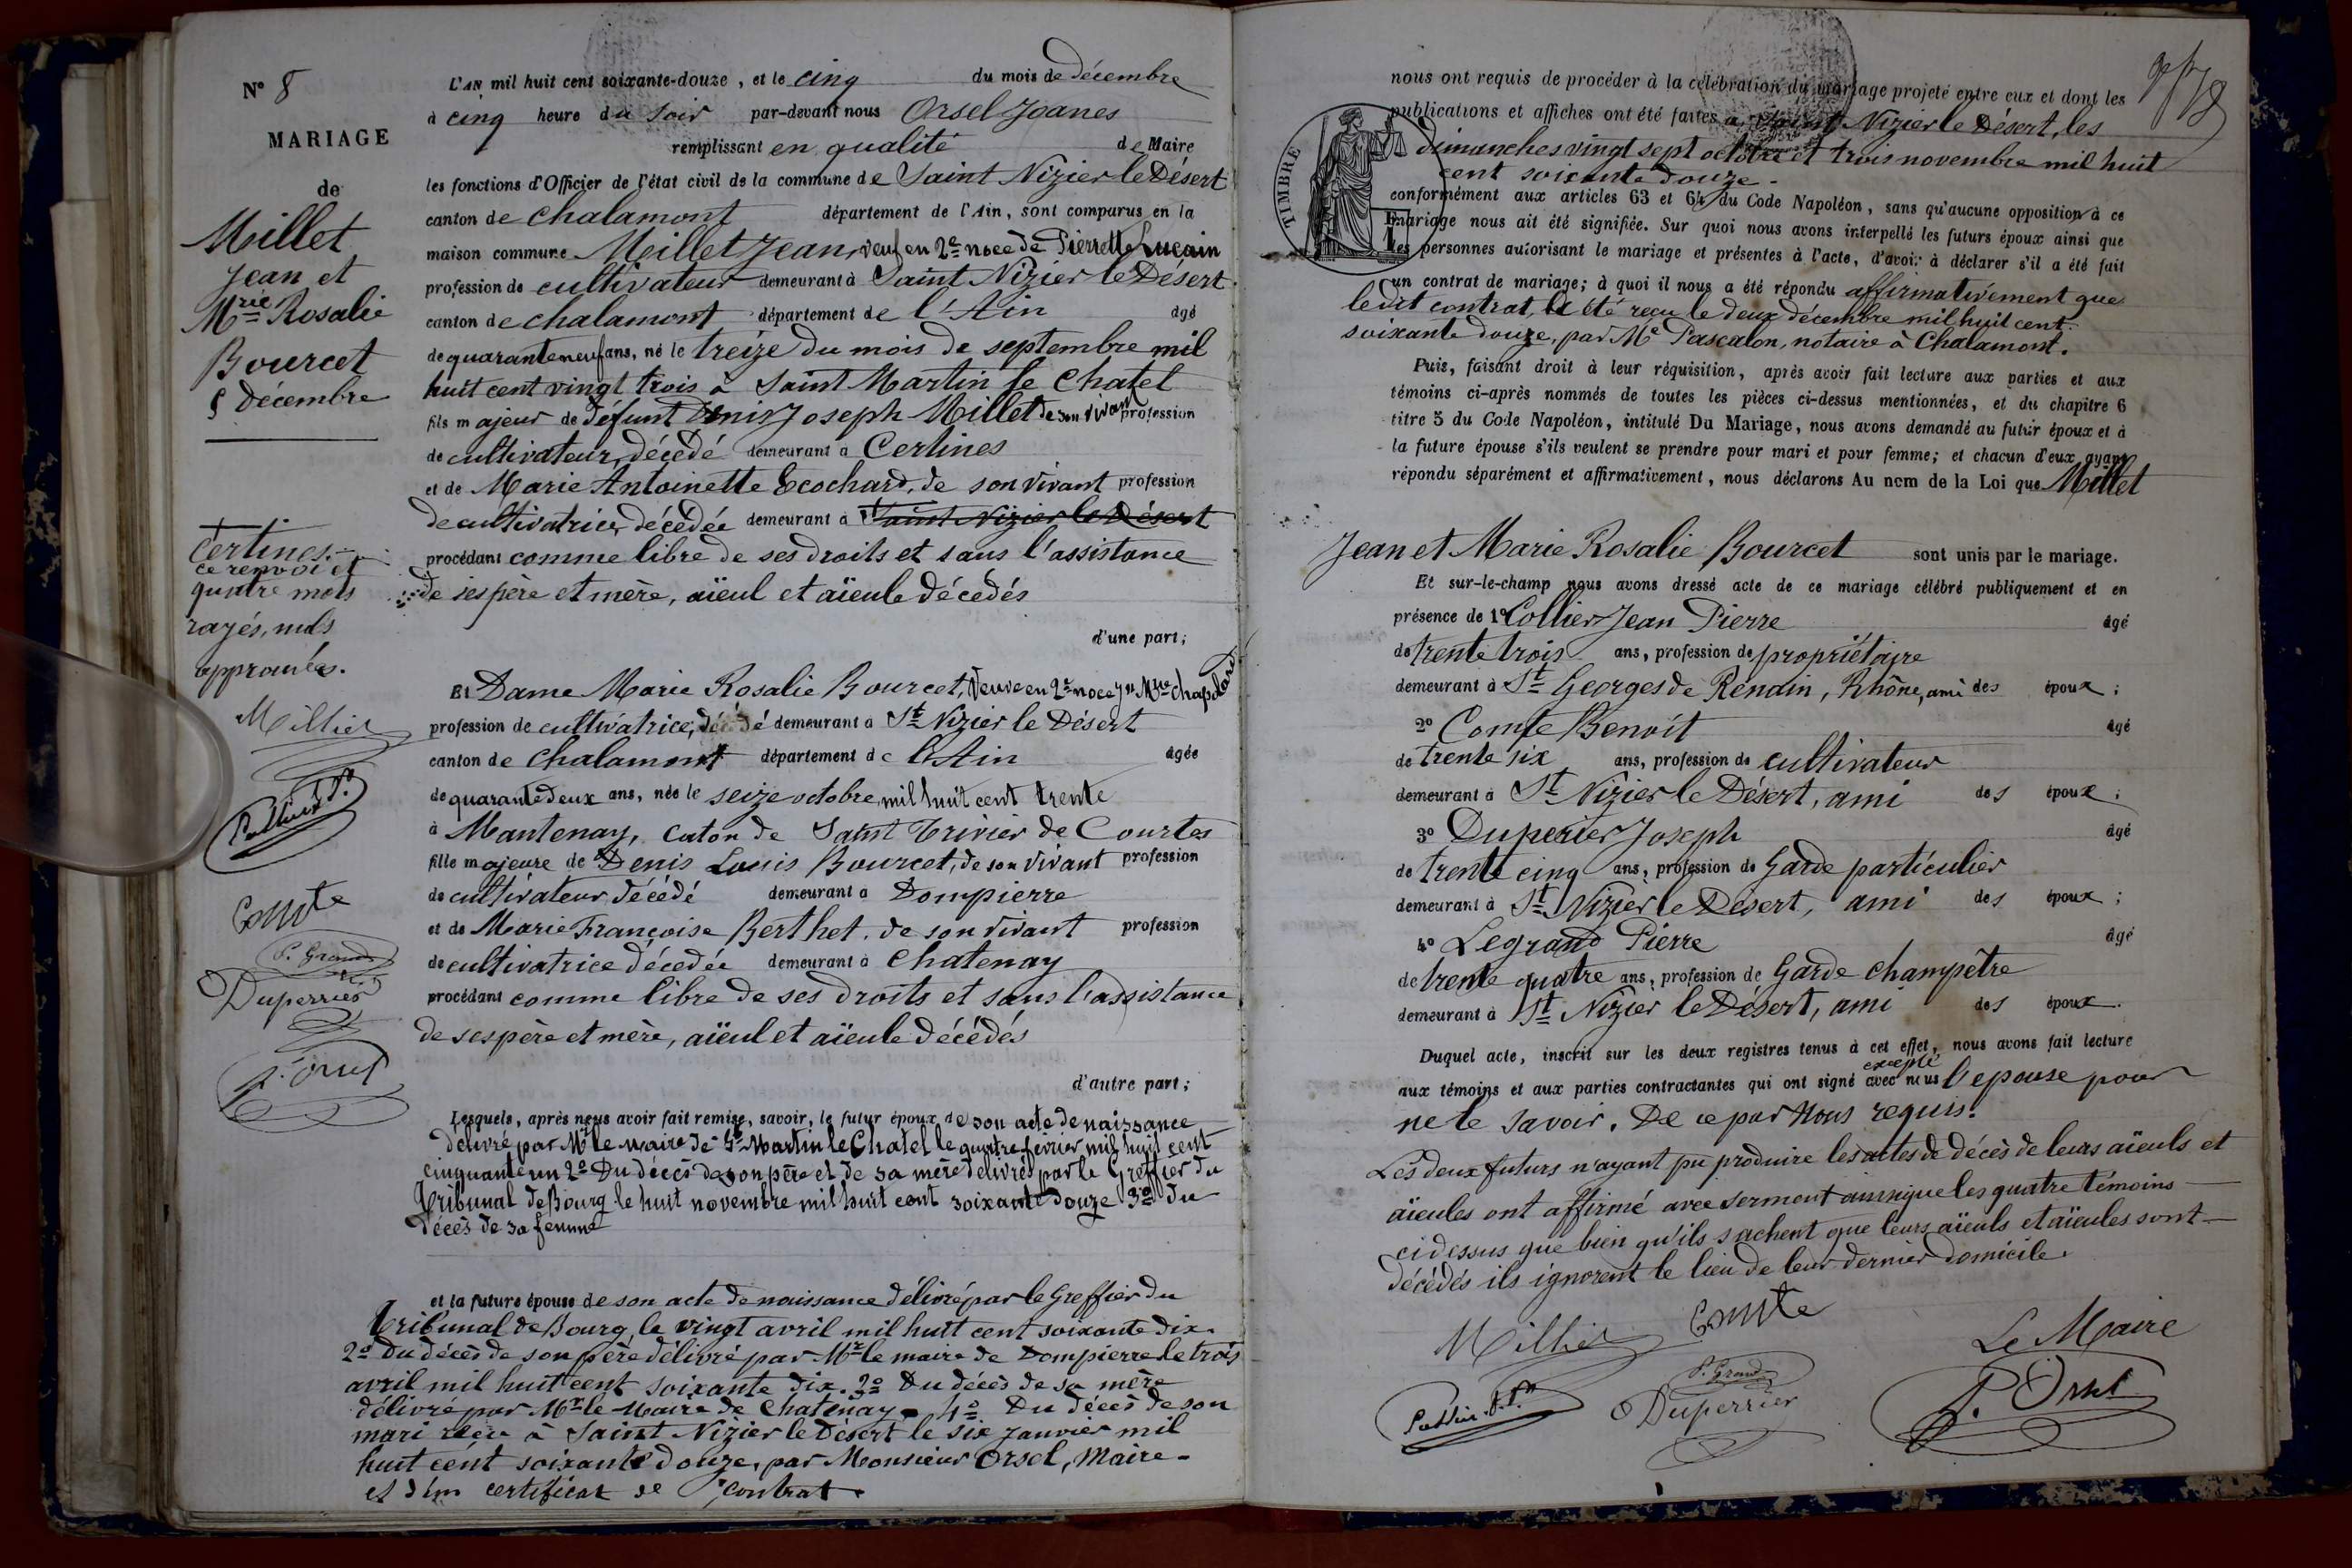 N° 8
MARIAGE
de
Millet
Jean et
Mrie Rosalie
Bourcet
5 Décembre
Certines.
ce renvoi et
quatre mots
rayés, nuls
approuvés.
Millet
Comte
P. Grand
Duperrier
L'AN mil huit cent soixante-douze, et le cinq du mois de décembre
à cinq heure du soir par-devant nous Orsel Joanes
remplissant en qualité de Maire
les fonctions d'Officier de l'état civil de la commune de Saint Nizier le Désert
canton de Chalamont département de l'Ain, sont comparus en la
maison commune Millet Jean, veuf en 2e noce de Pierrette Luçain
profession de cultivateur demeurant à Saint Nizier le Désert
canton de chalamont département de l'Ain âgé
de quarante neuf ans, né le treize du mois de septembre mil
huit cent vingt trois à Saint Martin le Chatel
fils majeur de défunt Denis Joseph Millet de son vivant profession
de cultivateur, décédé demeurant à Certines
et de Marie Antoinette Ecochard, de son vivant profession
de cultivatrice, décédée demeurant à Saint Nizier le Désert
procédant comme libre de ses droits et sans l'assistance
de ses père et mère, aïeul et aïeule décédés
d'une part;
Et Dame Marie Rosalie Bourcet, Veuve en 2e noce Jn Mrie Chapelard
profession de cultivatrice, décédé demeurant à St Nizier le Désert
canton de Chalamont département de l'Ain âgée
de quarante deux ans, née le seize octobre, mil huit cent trente
à Mantenay, caton de Saint Trivier de Courtes
fille majeure de Denis Louis Bourcet, de son vivant profession
de cultivateur décédé demeurant à Dompierre
et de Marie Françoise Berthet, de son vivant profession
de cultivatrice décedée demeurant à Chatenay
procédant comme libre de ses droits et sans l'assistance
de ses père et mère, aïeul et aïeule décédés
d'autre part;
Lesquels, après nous avoir fait remise, savoir, le futur époux de son acte de naissance
délivré par Mr le maire de St Martin le Chatel le quatre février mil huit cent
cinquante un 2° Du décès de son père et de sa mère délivrés par le Greffier du
Tribunal de Bourg le huit novembre mil huit cent soixante douze 3° Du
décès de sa femme
et la future épouse de son acte de naissance délivré par le Greffier du
Tribunal de Bourg, le vingt avril mil huit cent soixante dix.
2° Du décès de son père délivré par Mr le maire de Dompierre le trois
avril mil huit cent soixante dix. 3° Du décès de sa mère
délivré par Mr le Maire de Chatenay. 4° Du décès de son
mari à Saint Nizier le Désert le six janvier mil
huit cent soixante douze, par Monsieur Orsel, Maire.
et d'un certificat de contrat.
nous ont requis de procéder à la célébration du mariage projeté entre eux et dont les
publications et affiches ont été faites à Saint Nizier le Désert, les
dimanches vingt sept octobre et trois novembre mil huit
cent soixante douze.
TIMBRE
conformément aux articles 63 et 64 du Code Napoléon, sans qu'aucune opposition à ce
mariage nous ait été signifiée. Sur quoi nous avons interpellé les futurs époux ainsi que
les personnes autorisant le mariage et présentes à l'acte, d'avoir à déclarer s'il a été fait
un contrat de mariage; à quoi il nous a été répondu affirmativement que
ledit contrat, a été reçu le deux décembre mil huit cent
soixante douze, par Me Pascalon, notaire à Chalamont.
Puis, faisant droit à leur réquisition, après avoir fait lecture aux parties et aux
témoins ci-après nommés de toutes les pièces ci-dessus mentionnées, et du chapitre 6
titre 5 du Code Napoléon, intitulé Du Mariage, nous avons demandé au futur époux et à
la future épouse s'ils veulent se prendre pour mari et pour femme; et chacun d'eux ayant
répondu séparément et affirmativement, nous déclarons Au nom de la Loi que Millet
Jean et Marie Rosalie Bourcet sont unis par le mariage.
Et sur-le-champ nous avons dressé acte de ce mariage célébré publiquement et en
présence de 1° Collier Jean Pierre âgé
de trente trois ans, profession de propriétaire
demeurant à St Georges de Renain, Rhône, ami des époux;
2° Comte Benoit âgé
de trente six ans, profession de cultivateur
demeurant à St Nizier le Désert, ami des époux;
3° Duperier Joseph âgé
de trente cinq ans, profession de Garde particulier
demeurant à St Nizier le Désert, ami des époux;
4° Legrand Pierre âgé
de trente quatre ans, profession de Garde champêtre
demeurant à St Nizier le Désert, ami des époux.
Duquel acte, inscrit sur les deux registres tenus à cet effet, nous avons fait lecture
aux témoins et aux parties contractantes qui ont signé avec nous excepté l'epouse pour
ne le savoir. De ce par Nous requis.
Les deux futurs n'ayant pu produire les actes de décès de leurs aïeuls et
aïeules ont affirmé avec serment ainsi que les quatre témoins
ci dessus que bien qu'ils sachent que leurs aïeuls et aïeules sont
décédés ils ignorent le lieu de leur dernier domicile.
Millet Comte
Le Maire
P. Grand
Duperrier
J. Orsel